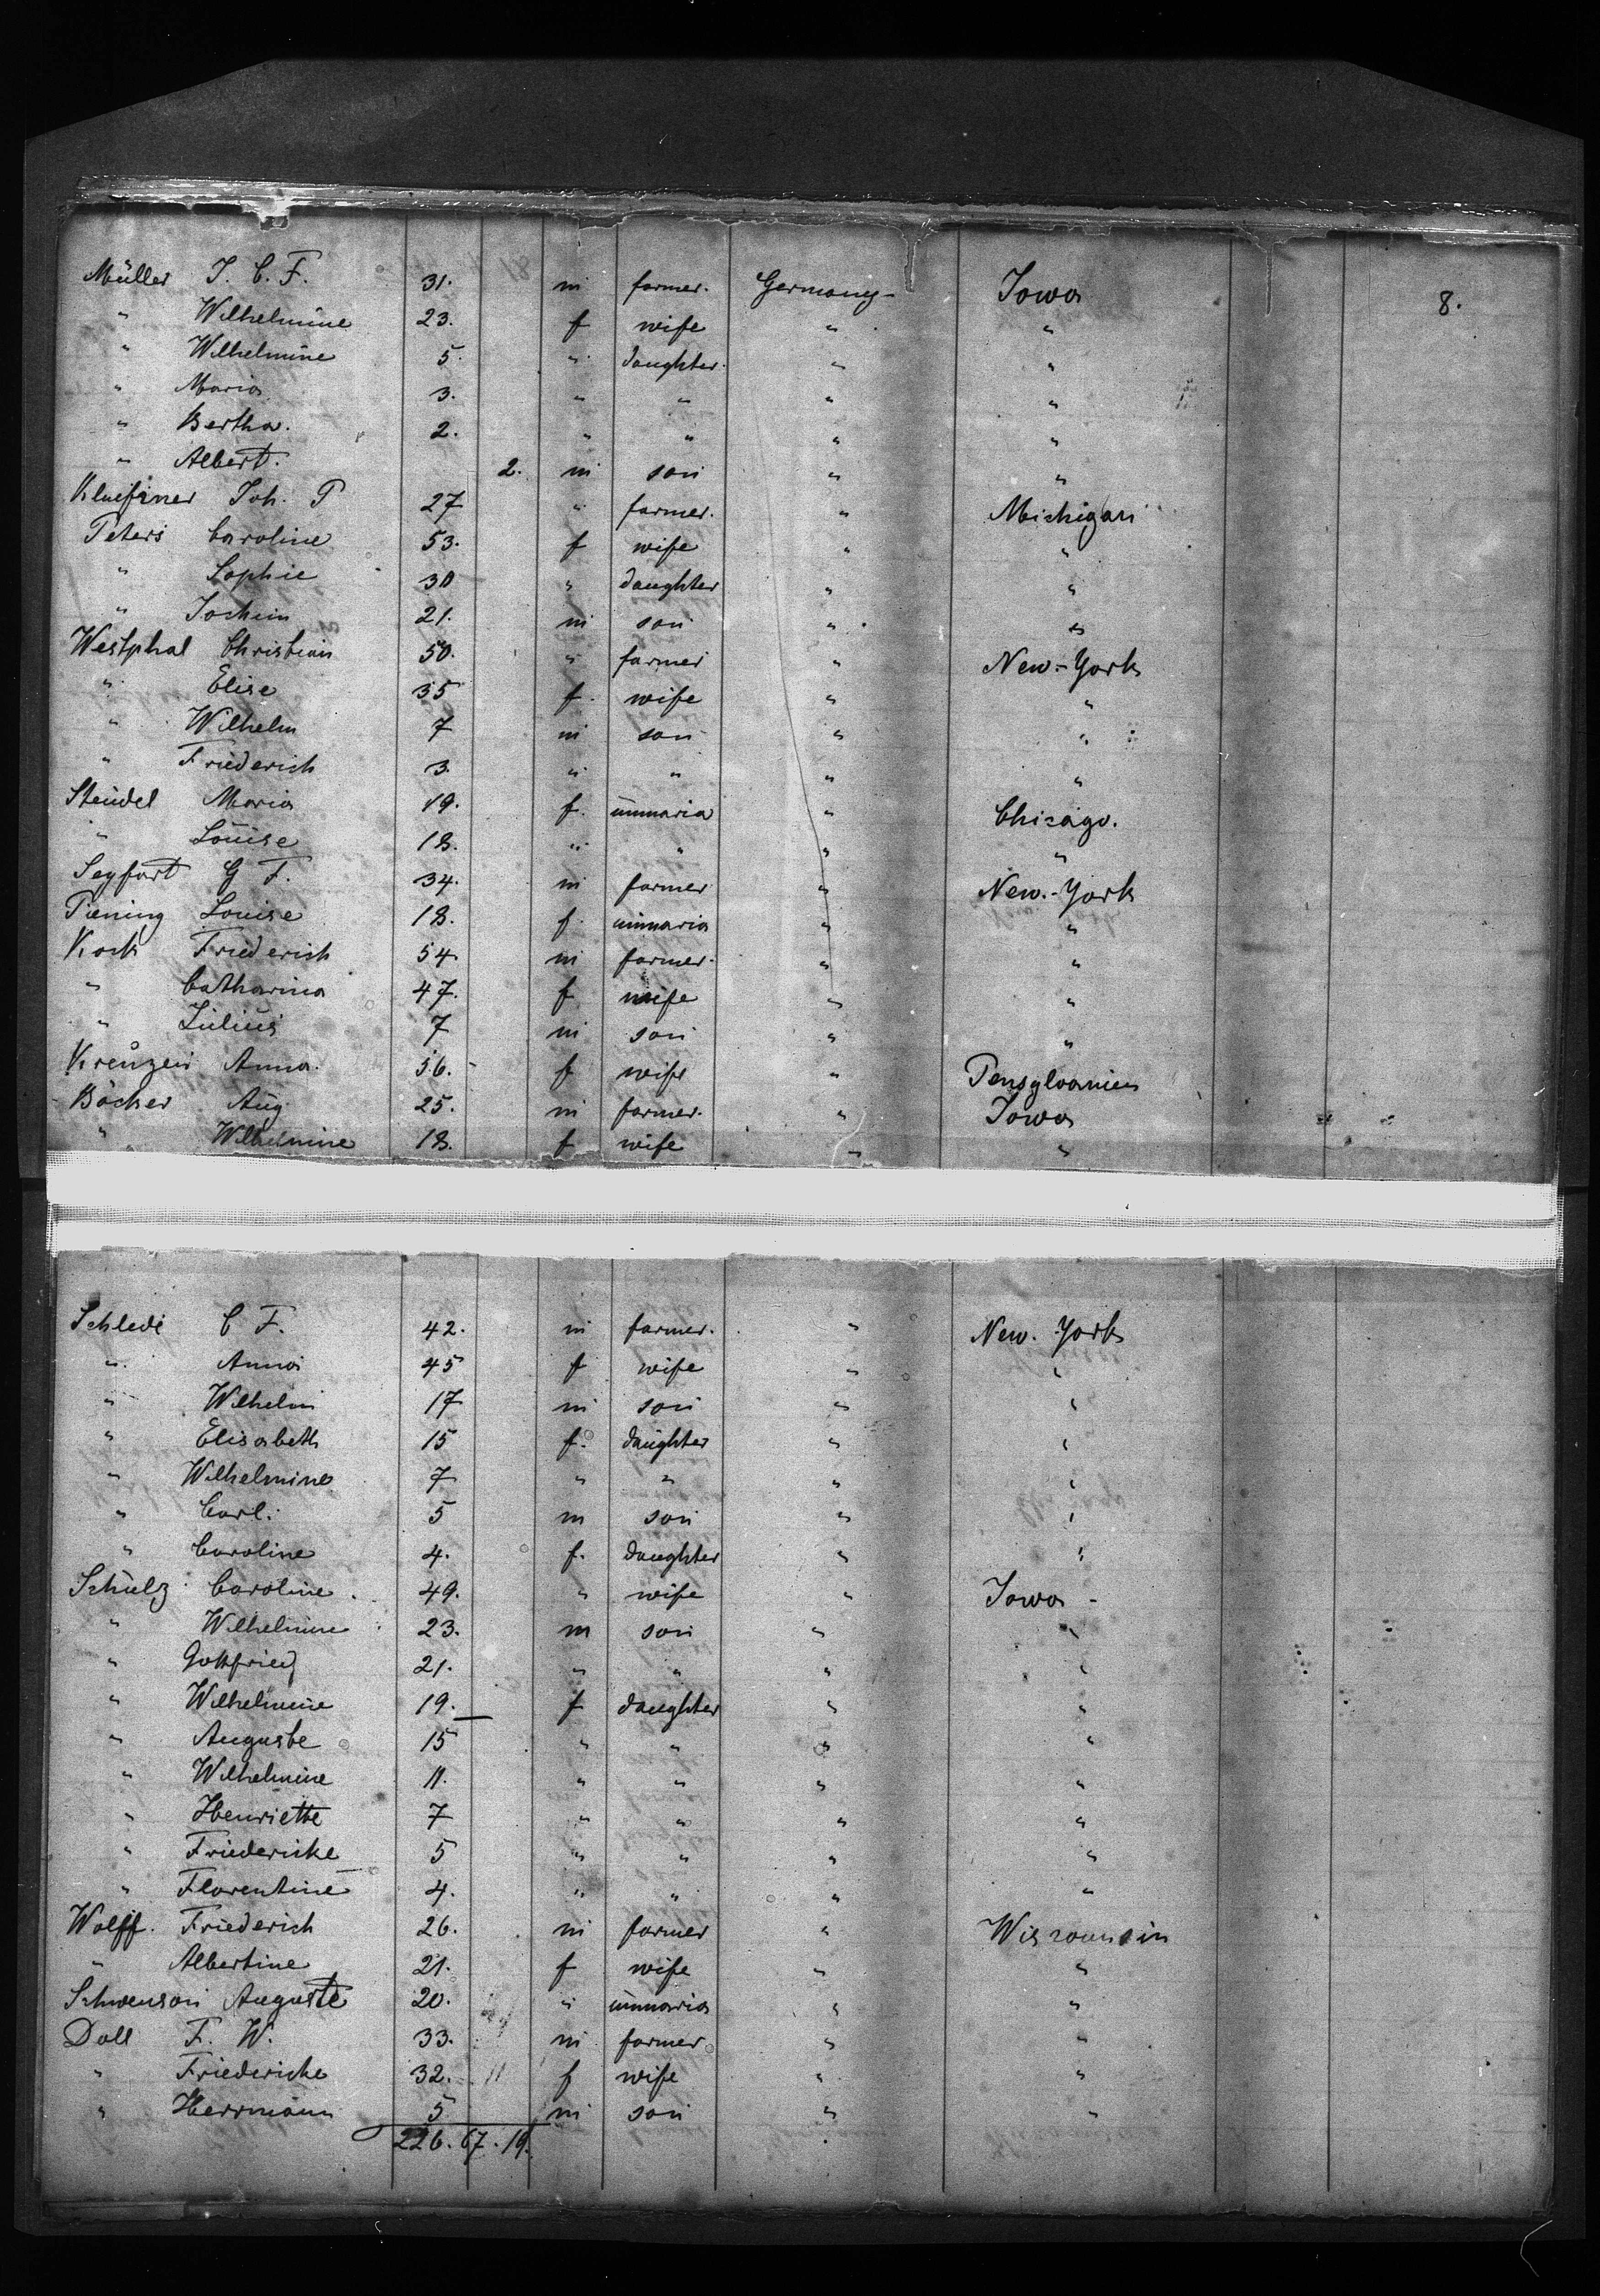 Müller J. C. F. 31. m farmer. Germany Iowa 8.
" Wilhelmine 23. f wife " "
" Wilhelmine 5. " daughter. " "
" Maria 3. " " " "
" Bertha. 2. " " " "
" Albert. 2. m son " "
Joh. P 27 " farmer. " Michigan
Peters Caroline 53. f wife " "
" Sophie 30 " daughter " "
" Jochim 21. m son " "
Westphal Christian 50. " farmer " New-York
" Elise 35 f. wife " "
" Wilhelm 7 m son " "
" Friederich 3. " " " "
Steudel Maria 19. f. unmaria " Chicago.
" Louise 18. " " " "
Seyfart G F. 34. m farmer " New-York
Piening Louise 18. f. unmaria " "
Kock Friederich 54. m farmer. " "
" Catharina 47. f wife " "
" Julius 7 m son " "
Kreuzen Anna. 56. f wife " Pensylvanien
Böcher Aug 25. m farmer. " Iowa
" Wilhelmine 18. f wife " "
Schlede C F. 42. m farmer. " New. York
" Anna 45 f wife " "
" Wilhelm 17 m son " "
" Elisabeth 15 f. daughter " "
" Wilhelmine 7 " " " "
" Carl. 5 m son " "
" Caroline 4. f. daughter " "
Schulz Caroline. 49. " wife " Iowa
" Wilhelmine 23. m son " "
" Gottfried 21. " " " "
" Wilhelmine 19. f daughter " "
" Auguste 15 " " " "
" Wilhelmine 11. " " " "
" Henriette 7 " " " "
" Friedericke 5 " " " "
" Florentine 4. " " " "
Wolff. Friederich 26. m farmer " Wisconnsin
" Albertine 21. f wife " "
Schwenson Auguste 20. " unmaria " "
Doll F. W. 33. m farmer " "
" Friedericke 32. f wife " "
" Herrmann 5 m son " "
226. 67. 19.